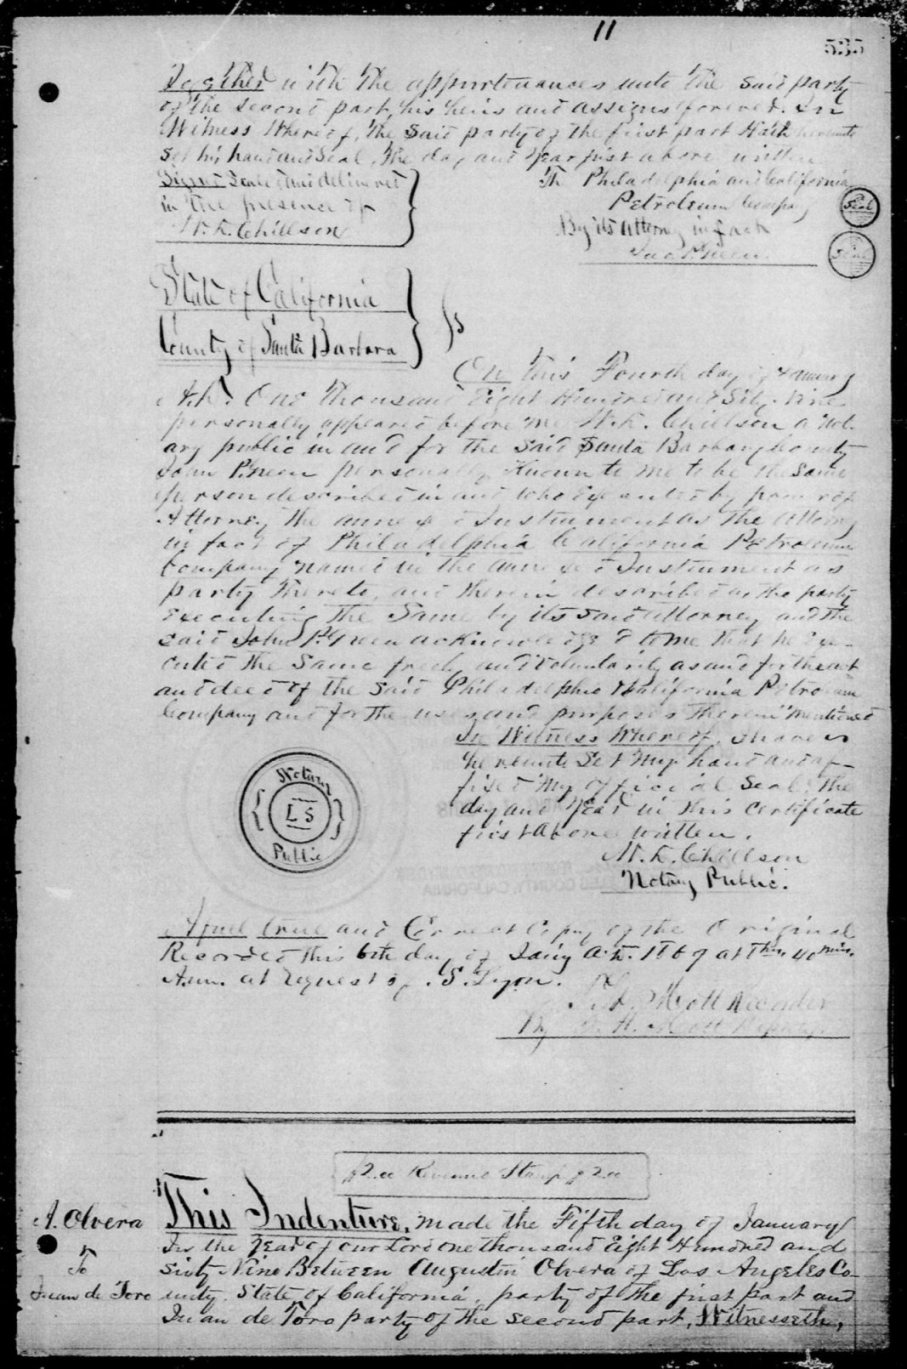 11
535
Together with the appurtenances unto the said party
of the second part, his heirs and assigns forever. In
Witness Whereof, the said party of the first part Hath hereunto
set his hand and seal, the day and Year first above written
Signed Sealed and delivered
in the presence of
W. K. Chillson
The Philadelphia and California
Petroleum Company
Seal
By its Attorney in fact
Seal
State of California
County of Santa Barbara
SS
On this Fourth day of January
A.D. One Thousand Eight Hundred and Sixty-Nine
personally appeared before me W. K. Chillson a Not-
ary public in and for the said Santa Barbara County
personally Known to me to be the same
person described in and who Executed by power of
Attorney the annexed Instrument as the Attorney
in fact of Philadelphia California Petroleum
Company named in the annexed Instrument as
party thereto, and therein described as the party
Executing the Same by its said Attorney and the
said John P. Green acknowledged to me that he Exe-
cuted the Same freely and voluntarily as and for the act
and deed of the said Philadelphia & California Petroleum
Company and for the uses and purposes therein mentioned
In Witness Whereof, I have
hereunto Set my hand and af-
fixed my official Seal, the
day and Year in this Certificate
first above written.
Notary
L S
Public
W. K. Chillson
Notary Public.
A full true and Correct Copy of the Original
Recorded this 6th day of Jany A.D. 1869 at 40 mins.
A.m. at request of S. Lyon.
Mott Recorder
By Mott Deputy
$2.00 Revenue Stamp $2.00
A. Olvera
To
Juan de Toro
This Indenture, made the Fifth day of January
In the Year of our Lord one thousand Eight Hundred and
Sixty Nine Between Augustin Olvera of Los Angeles Co-
unty, State of California, party of the first part and
Juan de Toro party of the second part, Witnesseth,